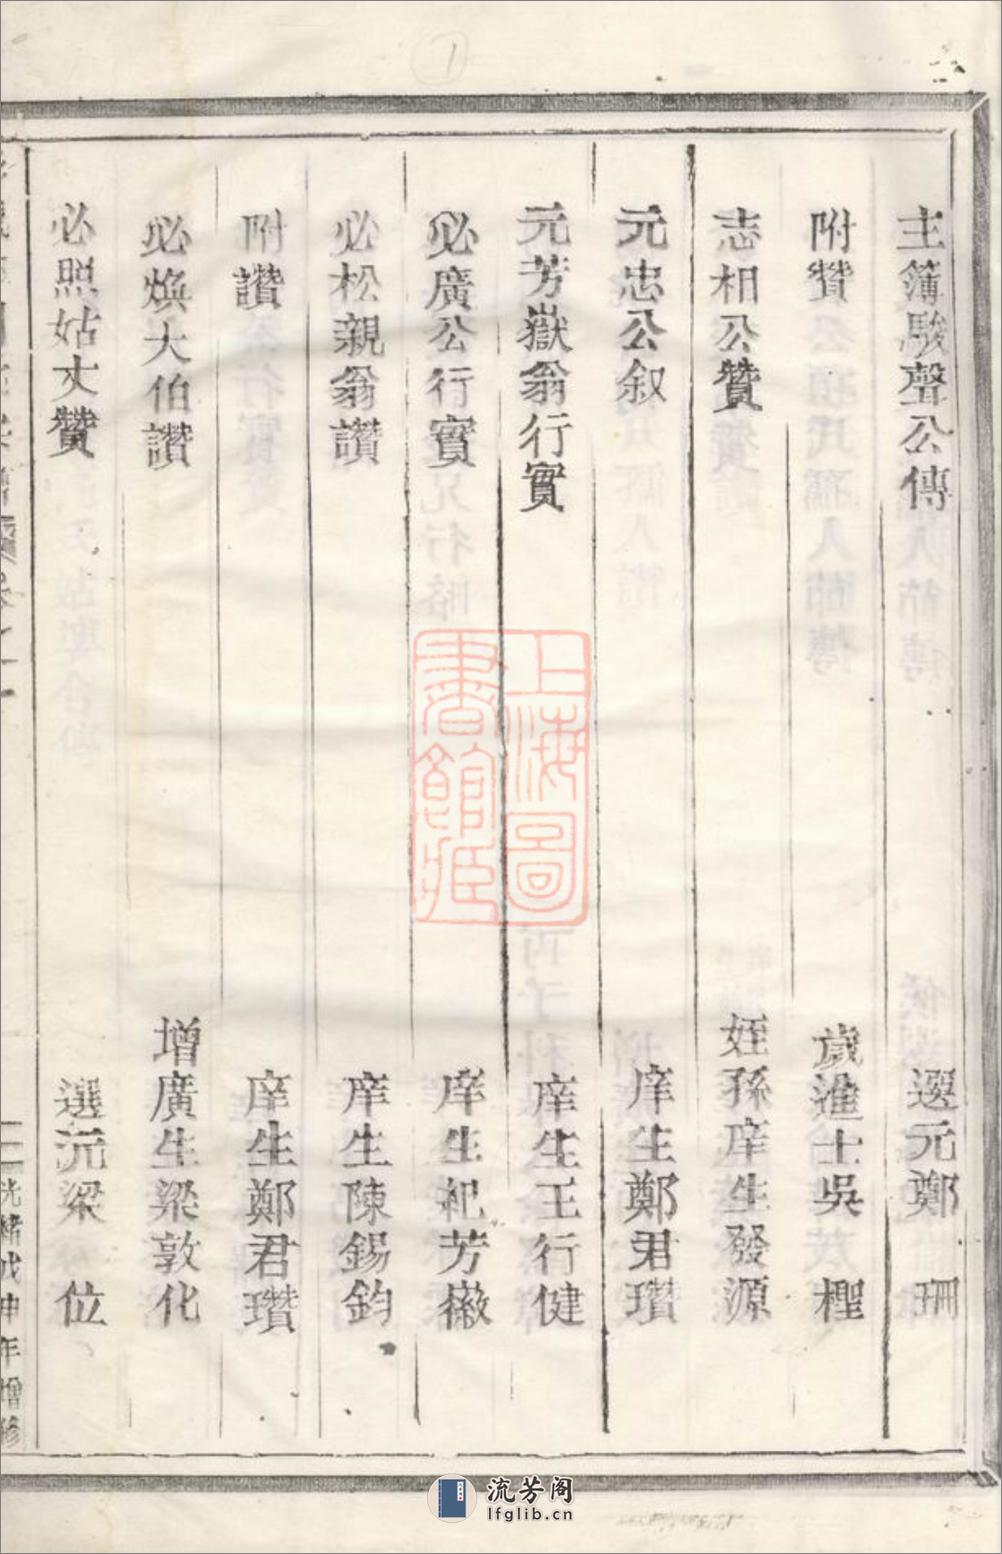 主簿駿聲公傳 選元鄭 珊
附贊 歲進士吳 檉
志相公贊 姪孫庠生發源
元忠公叙 庠生鄭君瓚
元芳嶽翁行實 庠生王行健
必廣公行實 庠生祀芳徽
必松親翁讚 庠生陳錫鈞
附讚 庠生鄭君瓚
必煥大伯讚 增廣生梁敦化
必照姑丈贊 選元梁 位
光緒戊申年增修
上海圖書館藏
流芳阁
lfglib.cn